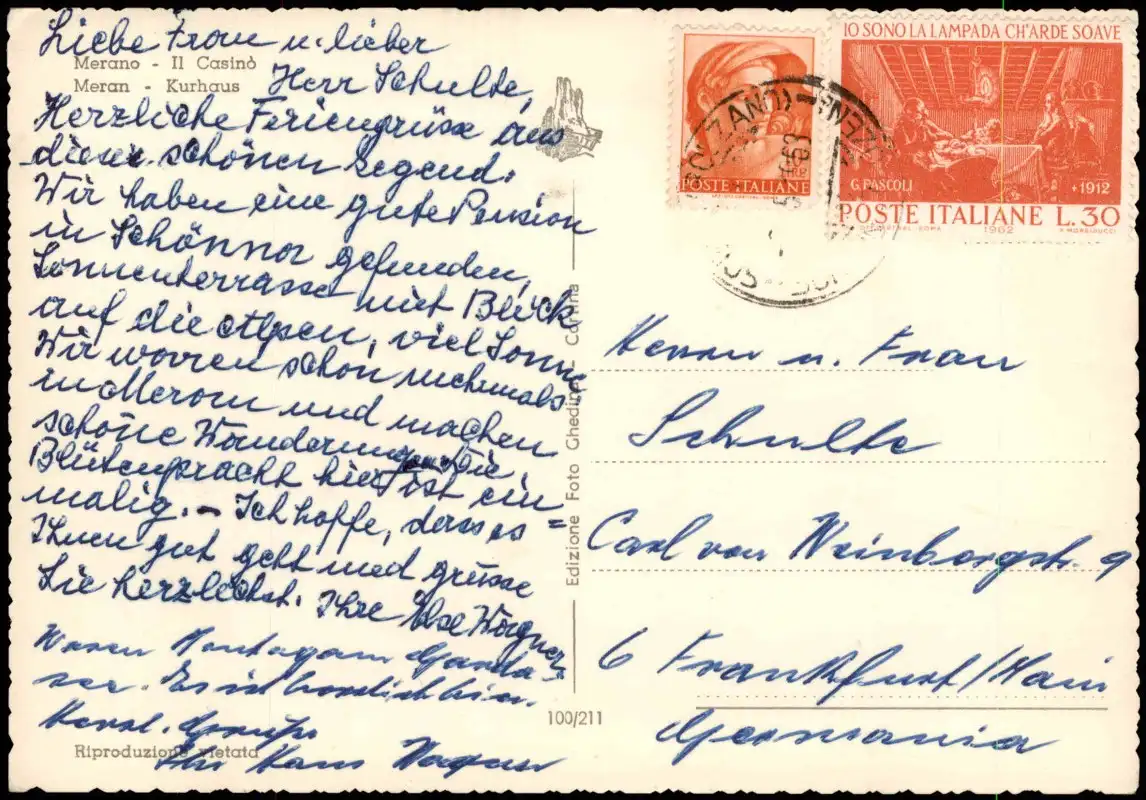 Liebe Frau u. lieber
Merano - Il Casinò
Meran - Kurhaus
Herr Schulte,
Herzliche Feriengrüsse aus
dieser schönen Gegend.
Wir haben eine gute Pension
in Schönna gefunden,
Sonnenterrasse mit Blick
auf die Alpen, viel Sonne
Wir waren schon mehmals
in Meran und machen
schöne Wanderungen. Die
Blütenpracht hier ist ein=
malig. - Ich hoffe, dass es
Ihnen gut geht und grüsse
Sie herzlichst. Ihre Wagner
Waren Montag am Garda-
see. Es ist herrlich hier.
Herzl. Grüße
Ihr Hans Wagner
Riproduzione vietata
Edizione Foto Ghedina - Cortina
100/211
POSTE ITALIANE
IO SONO LA LAMPADA CH'ARDE SOAVE
G. PASCOLI
+1912
POSTE ITALIANE L. 30
1962
Herrn u. Frau
Schulte
Carl von Weinbergstr. 9
6 Frankfurt/Main
Germania